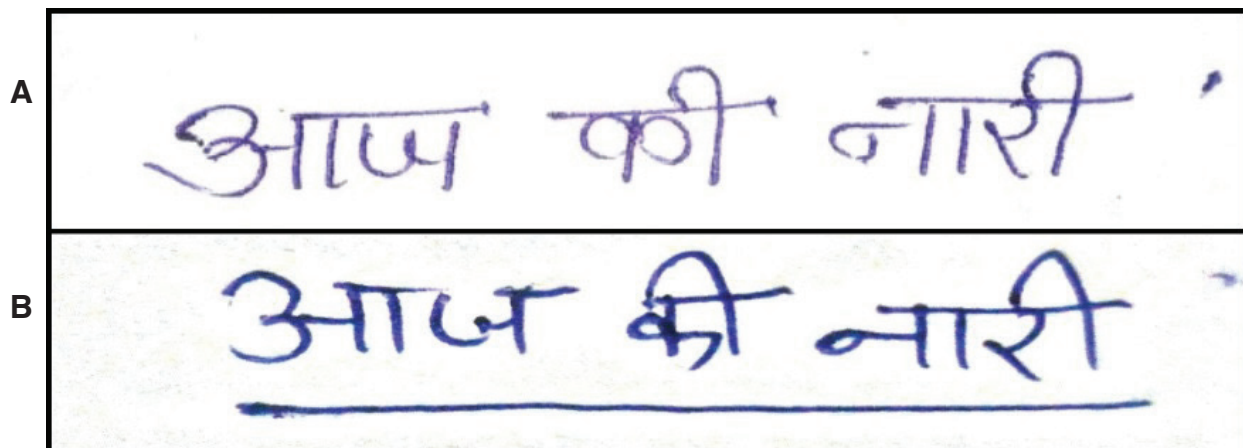 A
आज की नारी
B
आज की नारी